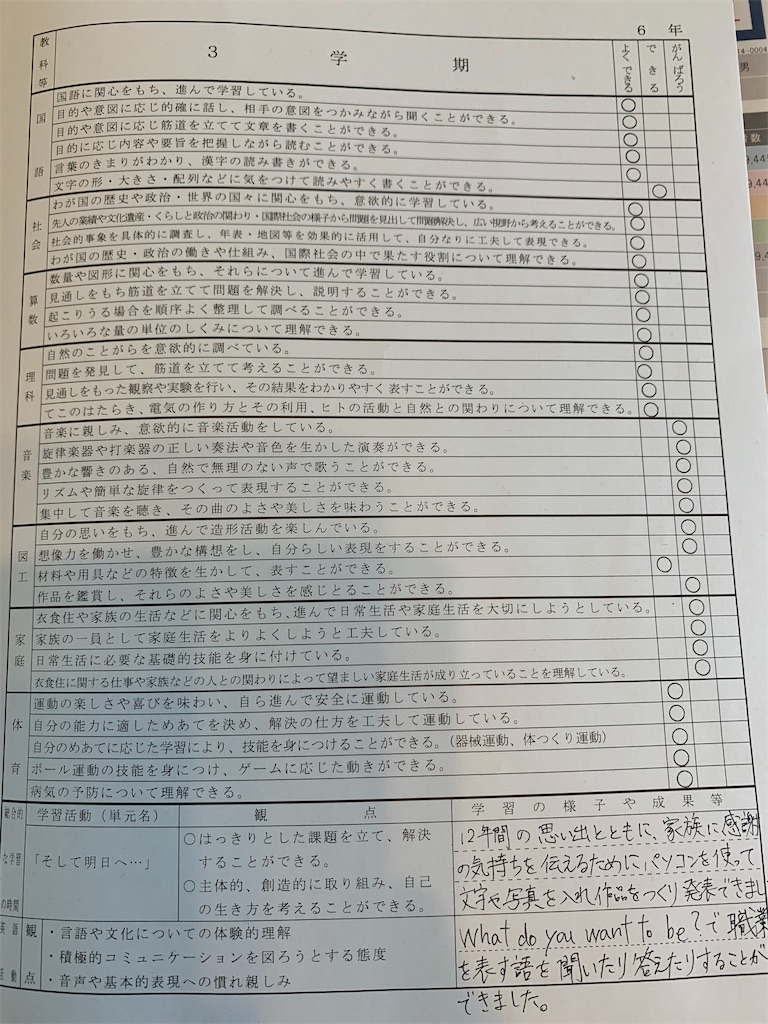 6 年
教科等 3 学 期 よくできる できる がんばろう
国語
国語に関心をもち、進んで学習している。 ○
目的や意図に応じ的確に話し、相手の意図をつかみながら聞くことができる。 ○
目的や意図に応じ筋道を立てて文章を書くことができる。 ○
目的に応じ内容や要旨を把握しながら読むことができる。 ○
言葉のきまりがわかり、漢字の読み書きができる。 ○
文字の形・大きさ・配列などに気をつけて読みやすく書くことができる。 ○
社会
わが国の歴史や政治・世界の国々に関心をもち、意欲的に学習している。 ○
先人の業績や文化遺産・くらしと政治の関わり・国際社会の様子から問題を見出して問題解決し、広い視野から考えることができる。 ○
社会的事象を具体的に調査し、年表・地図等を効果的に活用して、自分なりに工夫して表現できる。 ○
わが国の歴史・政治の働きや仕組み、国際社会の中で果たす役割について理解できる。 ○
算数
数量や図形に関心をもち、それらについて進んで学習している。 ○
見通しをもち筋道を立てて問題を解決し、説明することができる。 ○
起こりうる場合を順序よく整理して調べることができる。 ○
いろいろな量の単位のしくみについて理解できる。 ○
理科
自然のことがらを意欲的に調べている。 ○
問題を発見して、筋道を立てて考えることができる。 ○
見通しをもった観察や実験を行い、その結果をわかりやすく表すことができる。 ○
てこのはたらき、電気の作り方とその利用、ヒトの活動と自然との関わりについて理解できる。 ○
音楽
音楽に親しみ、意欲的に音楽活動をしている。 ○
旋律楽器や打楽器の正しい奏法や音色を生かした演奏ができる。 ○
豊かな響きのある、自然で無理のない声で歌うことができる。 ○
リズムや簡単な旋律をつくって表現することができる。 ○
集中して音楽を聴き、その曲のよさや美しさを味わうことができる。 ○
図工
自分の思いをもち、進んで造形活動を楽しんでいる。 ○
想像力を働かせ、豊かな構想をし、自分らしい表現をすることができる。 ○
材料や用具などの特徴を生かして、表すことができる。 ○
作品を鑑賞し、それらのよさや美しさを感じとることができる。 ○
家庭
衣食住や家族の生活などに関心をもち、進んで日常生活や家庭生活を大切にしようとしている。 ○
家族の一員として家庭生活をよりよくしようと工夫している。 ○
日常生活に必要な基礎的技能を身に付けている。 ○
衣食住に関する仕事や家族などの人との関わりによって望ましい家庭生活が成り立っていることを理解している。 ○
体育
運動の楽しさや喜びを味わい、自ら進んで安全に運動している。 ○
自分の能力に適しためあてを決め、解決の仕方を工夫して運動している。 ○
自分のめあてに応じた学習により、技能を身につけることができる。(器械運動、体つくり運動) ○
ボール運動の技能を身につけ、ゲームに応じた動きができる。 ○
病気の予防について理解できる。 ○
総合的な学習の時間
学習活動(単元名) 観 点 学習の様子や成果等
「そして明日へ…」
○はっきりとした課題を立て、解決
することができる。
○主体的、創造的に取り組み、自己
の生き方を考えることができる。
12年間の思い出とともに、家族に感謝
の気持ちを伝えるためにパソコンを使って
文字や写真を入れ作品をつくり発表できまし
英語活動 観点
・言語や文化についての体験的理解
・積極的コミュニケーションを図ろうとする態度
・音声や基本的表現への慣れ親しみ
What do you want to be?で職業
を表す語を聞いたり答えたりすることが
できました。
14-0004
男